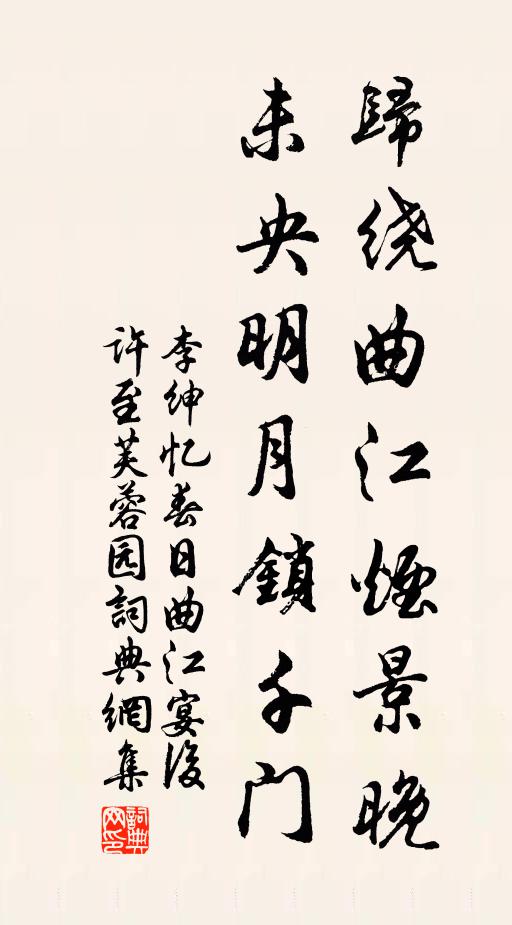 歸绕曲江煙景晚
未央明月鎖千门
李绅忆春日曲江宴後
许至芙蓉园詞典網集
詞典网印